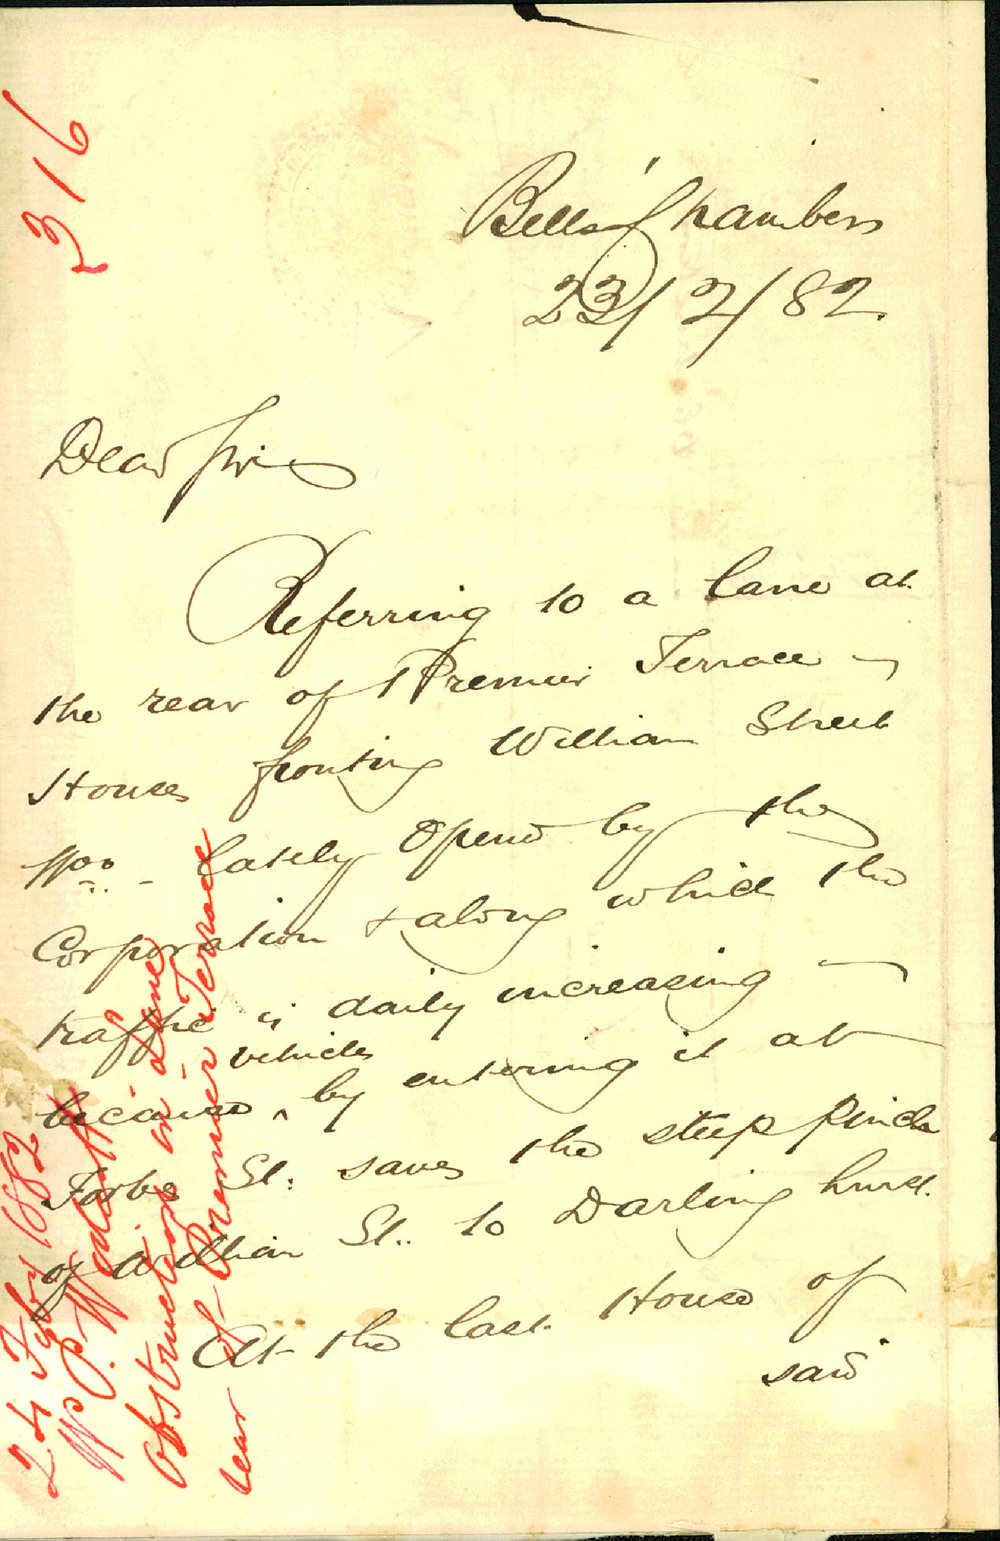 316
Bells' Chambers
23/2/82.
Dear Sir
Referring to a lane at
the rear of Premier Terrace -
Houses fronting William Street
Woo - lately opend by the
Corporation & along which the
traffic is daily increasing -
because vehicles by entering it at
Forbs St. saves the steep pinch
of William St. to Darlinghurst.
At the last House of
said
24 Feby 1882
W. P.
Obstruction in Lane
rear of Premier Terrace